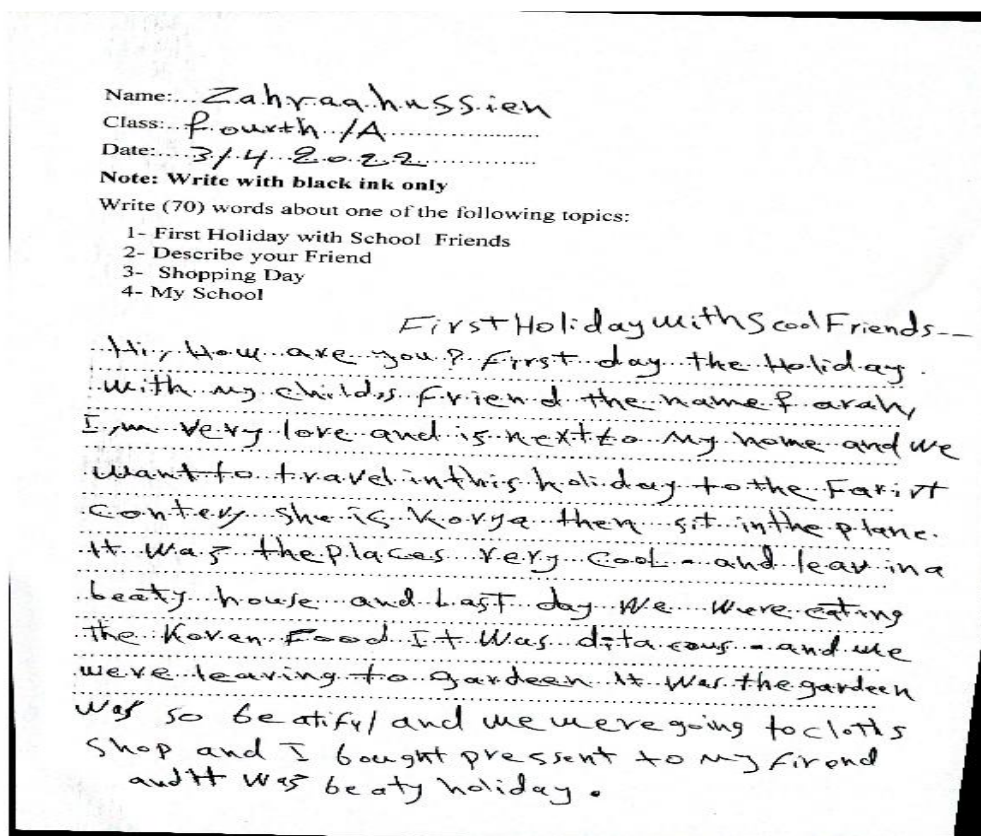 Name:... Zahraa hussien
Class:.. fourth /A
Date:.... 3/4 2022
Note: Write with black ink only
Write (70) words about one of the following topics:
1- First Holiday with School Friends
2- Describe your Friend
3- Shopping Day
4- My School
First Holiday with Scool Friends--
Hi, How are you? First day the Holiday.
with my child,s friend the name farah,
I,m very love and is next to My home and we
want to travel in this holiday to the Farirt
Contery she is Korya then sit in the plane.
It was the places very cool - and leav in a
beaty house and Last day We were eating
the Koren Food It Was - and we
were leaving to gardeen It was the gardeen
was so beatifyl and we were going to cloths
shop and I bought pressent to my firend
and It was beaty holiday.